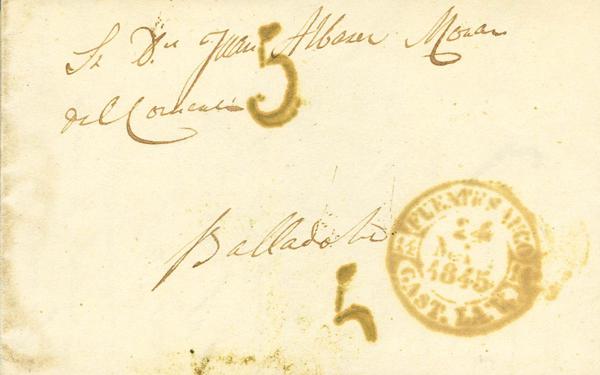 Sr Dn Juan Albarez Moran
del Comercio
5
Balladolid
5
FUENTESAUCO
24
MAY
1845
CAST. LA V.